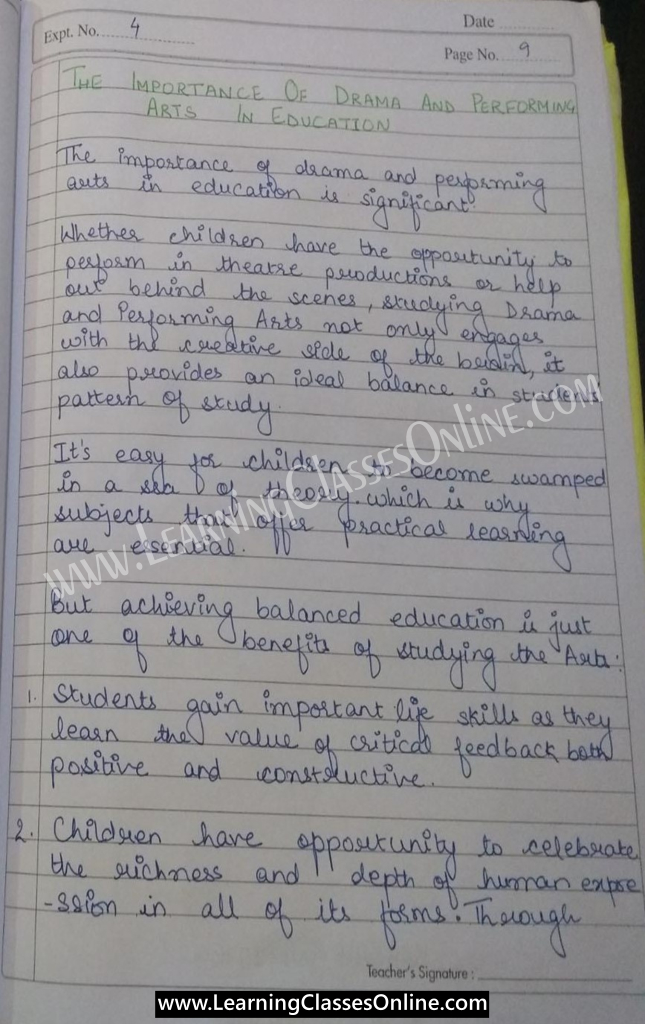 Expt. No. 4
Date
Page No. 9
THE IMPORTANCE OF DRAMA AND PERFORMING
ARTS IN EDUCATION
The importance of drama and performing
arts in education is significant.
Whether children have the opportunity to
perform in theatre productions or help
out behind the scenes, studying Drama
and Performing Arts not only engages
with the creative side of the brain, it
also provides an ideal balance in students
pattern of study.
It's easy for children to become swamped
in a sea of theory. which is why
subjects that offer practical learning
are essential.
www.LearningClassesOnline.com
But achieving balanced education is just
one of the benefits of studying the Arts:
1. Students gain important life skills as they
learn the value of critical feedback both
positive and constructive.
2. Children have opportunity to celebrate
the richness and depth of human expre
-ssion in all of its forms. Through
Teacher's Signature :
www.LearningClassesOnline.com